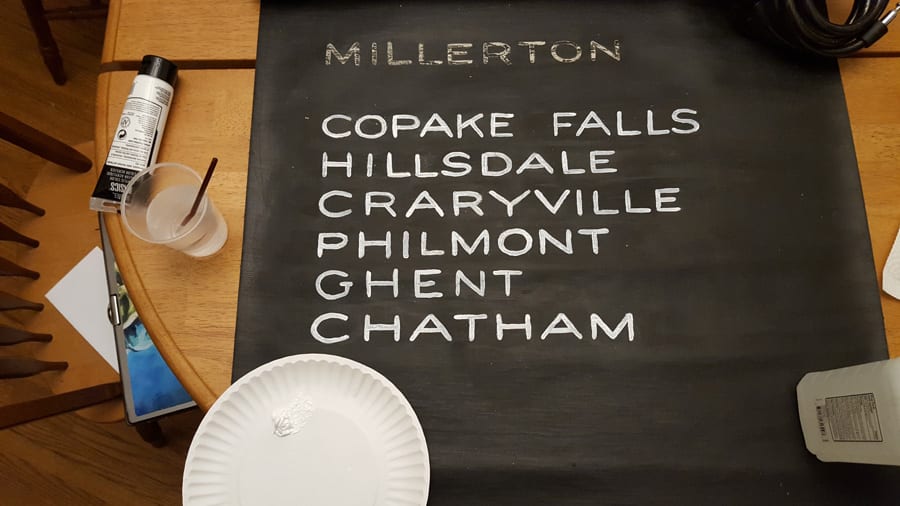 MILLERTON
COPAKE FALLS
HILLSDALE
CRARYVILLE
PHILMONT
GHENT
CHATHAM
BASICS